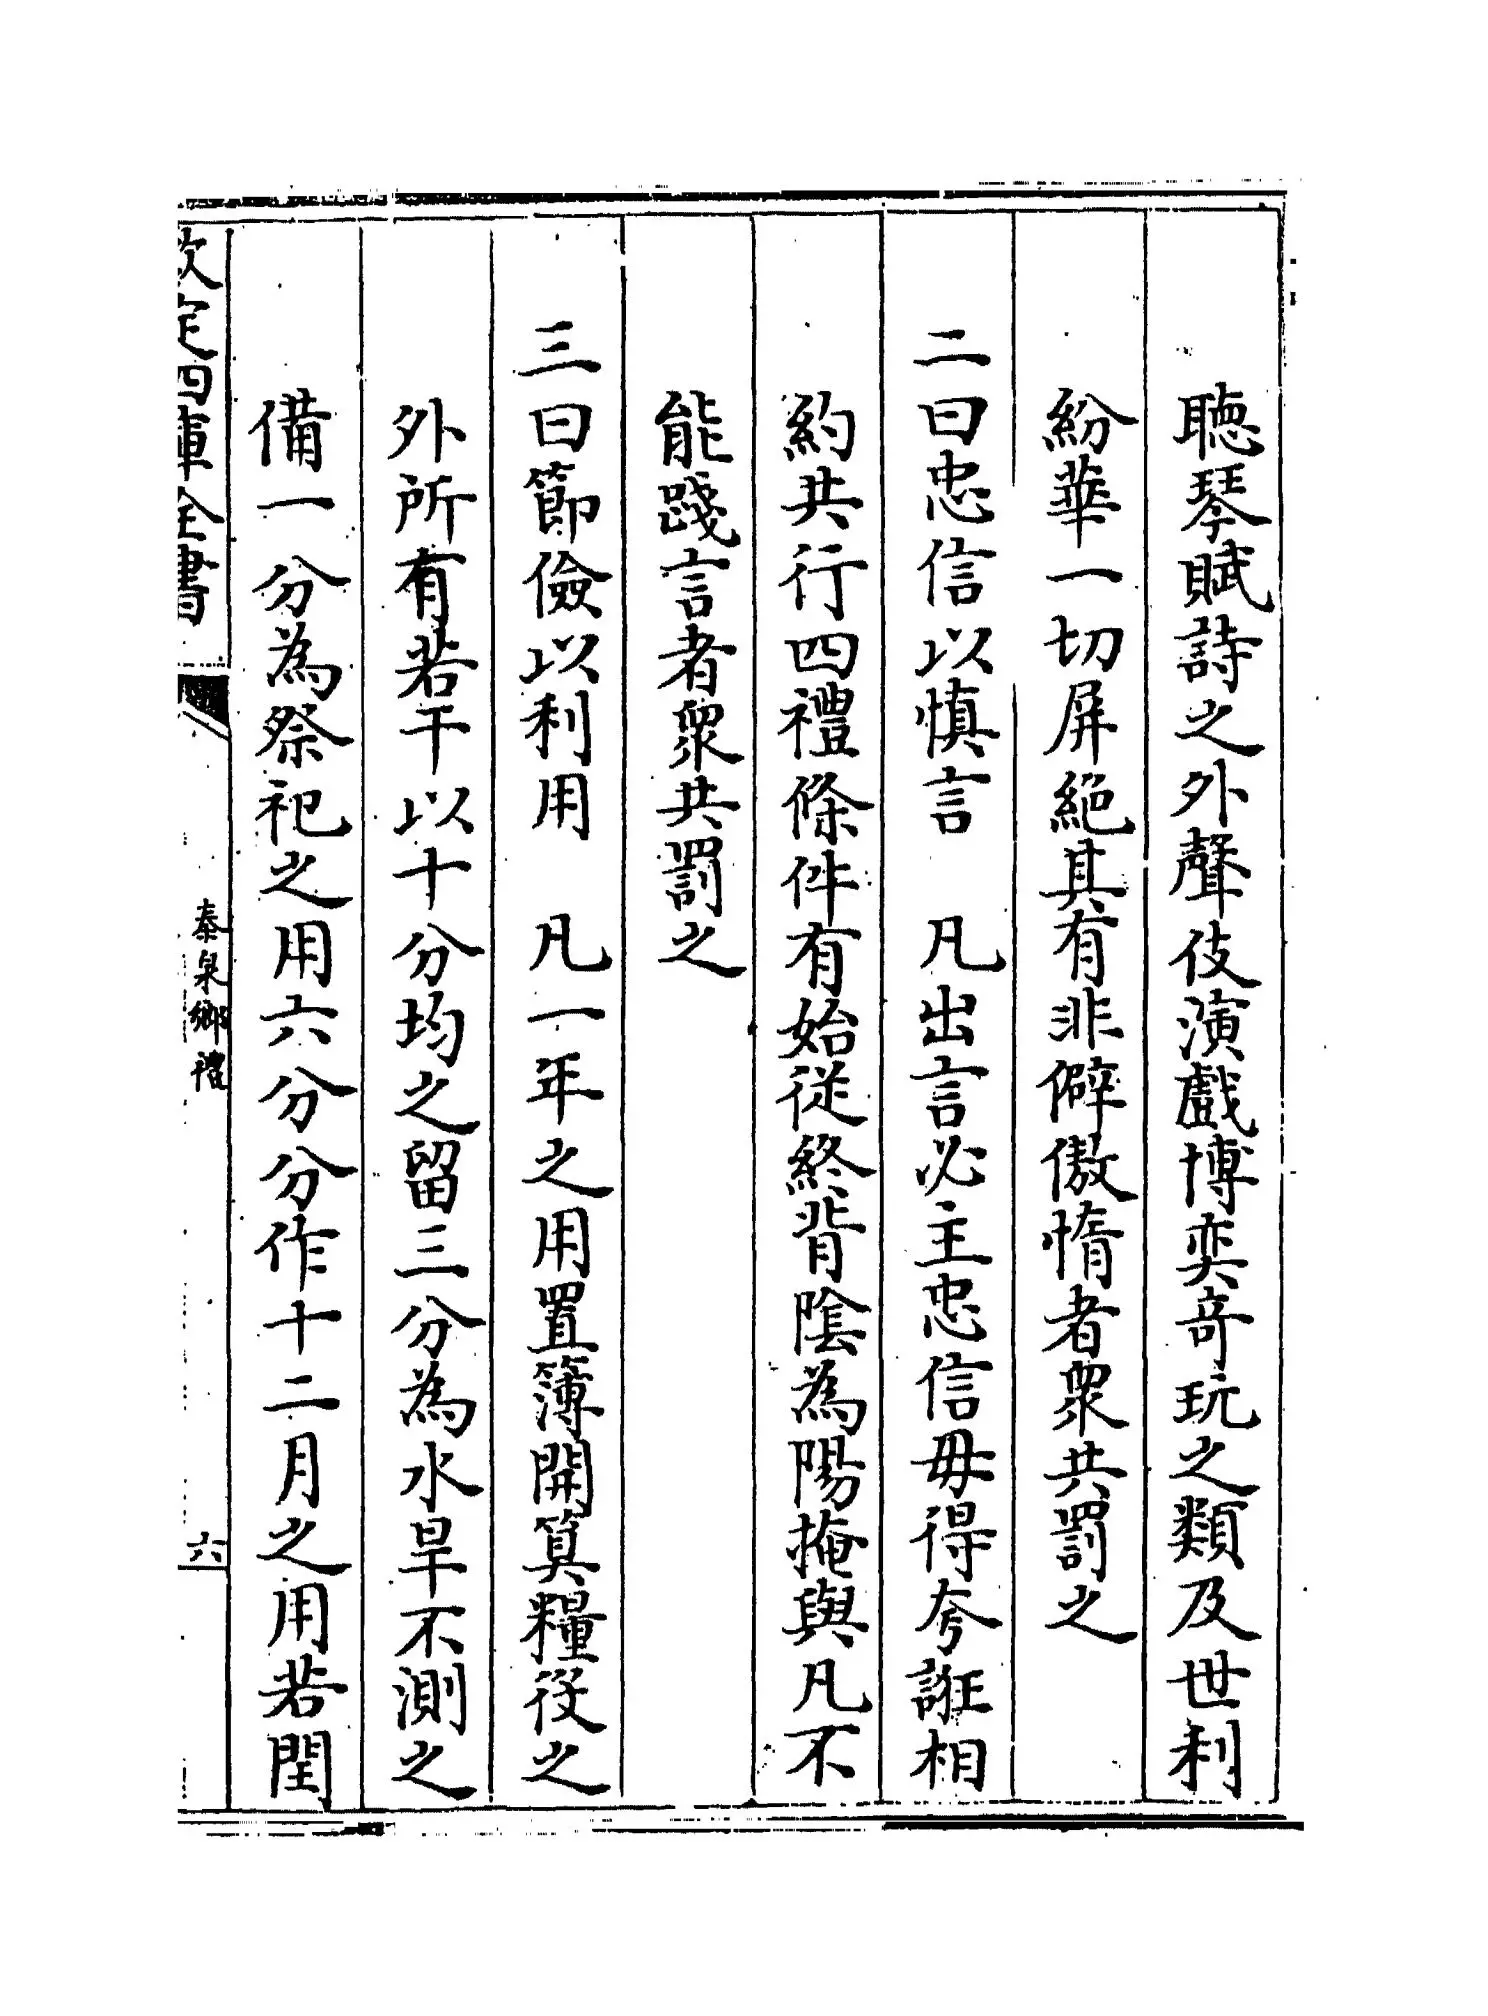 聽琴賦詩之外聲伎演戲博奕竒玩之類及世利
紛華一切屏絕其有非僻傲惰者衆共罰之
二曰忠信以慎言　凡出言必主忠信毋得夸誑相
約共行四禮條件有始從終背陰為陽掩與凡不
能踐言者衆共罰之
三曰節儉以利用　凡一年之用置簿開算糧役之
外所有若干以十分均之留三分為水旱不測之
備一分為祭祀之用六分分作十二月之用若閏
欽定四庫全書
泰泉鄉禮
六